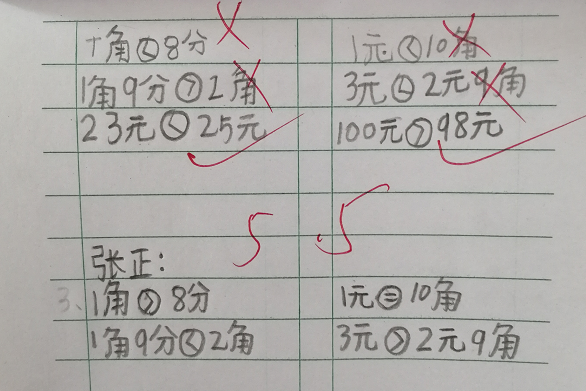 十角<8分 1元<10角
1角9分>2角 3元<2元9角
23元<25元 100元>98元
张正:
3、1角>8分 1元=10角
1角9分<2角 3元>2元9角